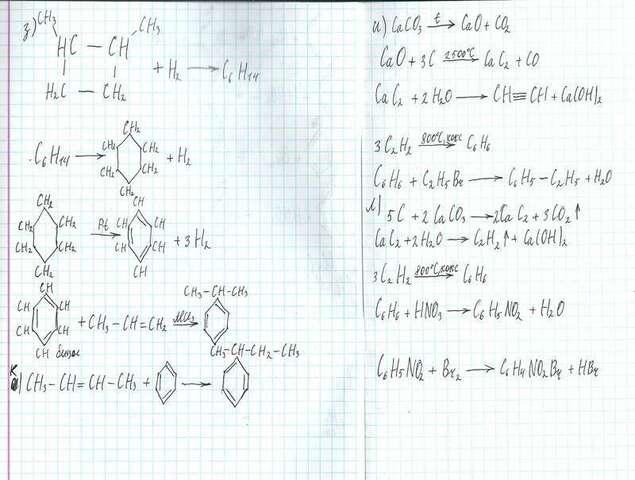 з) CH₃ CH₃
HC — CH
+ H₂ ⟶ C₆H₁₄
H₂C — CH₂
C₆H₁₄ ⟶ CH₂ CH₂ CH₂ CH₂ CH₂ CH₂ + H₂
CH₂ CH₂ CH₂ CH₂ CH₂ CH₂ Pt ⟶ CH CH CH CH CH CH + 3H₂
CH CH CH CH CH CH бензол + CH₃ – CH = CH₂ ⟶ CH₃ – CH – CH₃
CH₃ – CH – CH₂ – CH₃
к) CH₃ – CH = CH – CH₃ + ⟶
и) CaCO₃ t⟶ CaO + CO₂
CaO + 3C 2500°C⟶ CaC₂ + CO
CaC₂ + 2H₂O ⟶ CH≡CH + Ca(OH)₂
3C₂H₂ 800°C, кокс⟶ C₆H₆
C₆H₆ + C₂H₅Br ⟶ C₆H₅–C₂H₅ + H₂O
л) 5C + 2CaCO₃ ⟶ 2CaC₂ + 3CO₂↑
CaC₂ + 2H₂O ⟶ C₂H₂↑ + Ca(OH)₂
3C₂H₂ 800°C, кокс⟶ C₆H₆
C₆H₆ + HNO₃ ⟶ C₆H₅NO₂ + H₂O
C₆H₅NO₂ + Br₂ ⟶ C₆H₄NO₂Br + HBr